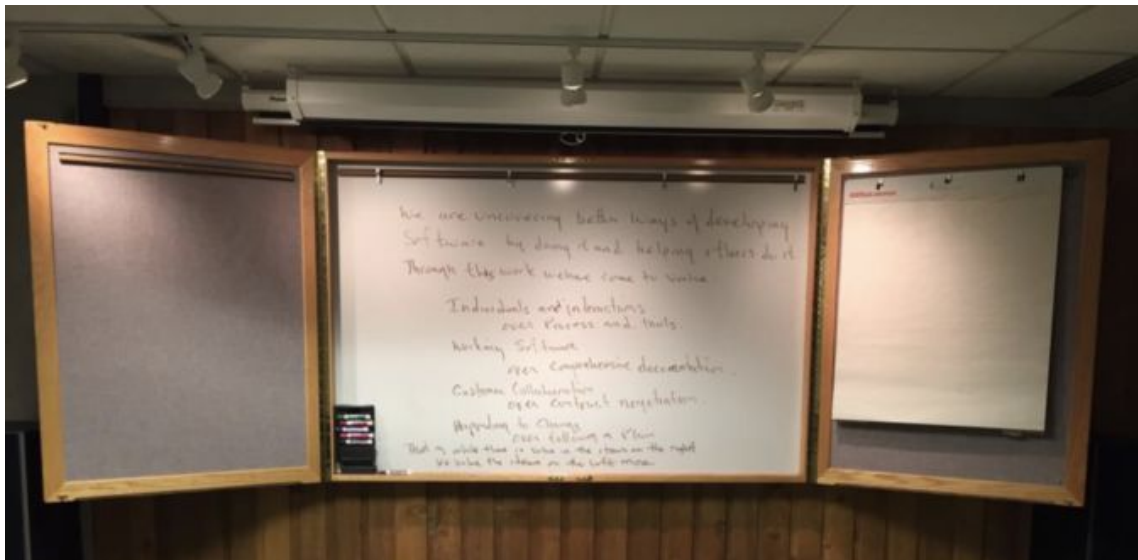 We are uncovering better ways of developing
Software by doing it and helping others do it
Through this work we have come to value
Individuals and interactions
over Process and tools.
Working Software
over Comprehensive documentation.
Customer Collaboration
over contract negotiation.
to Change
over following a Plan
That is while there is value in the items on the right
We value the items on the left more.